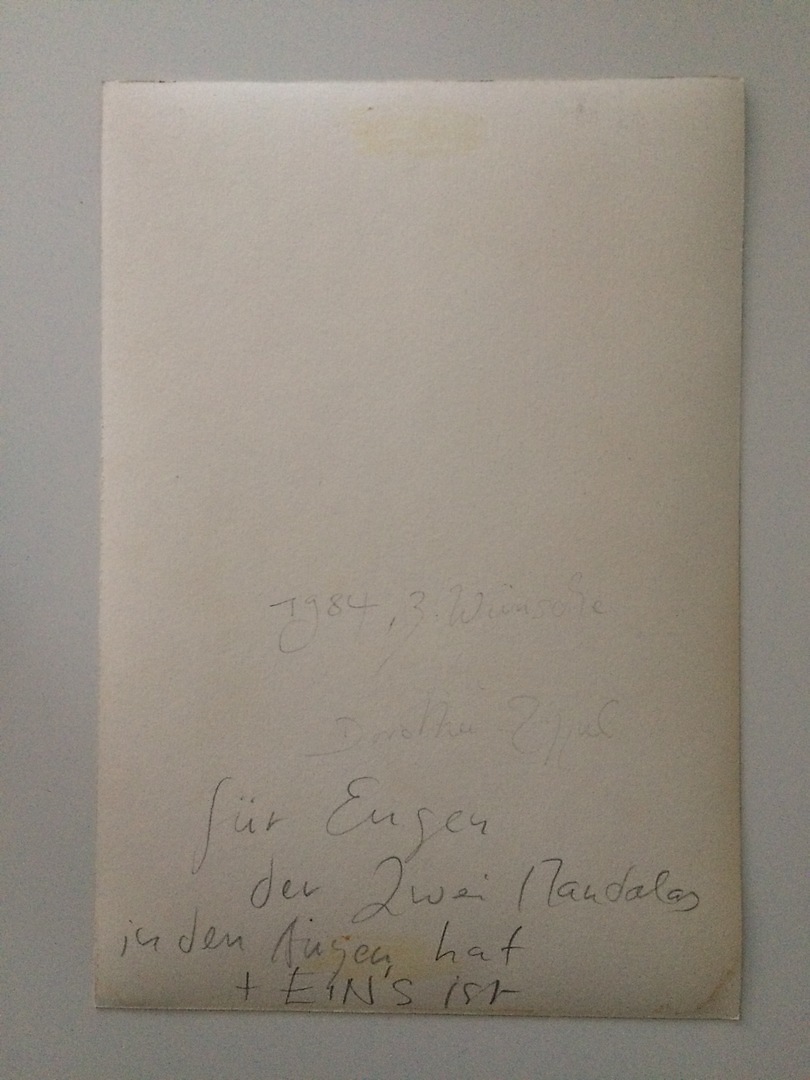 1984, 3. Wünsche
Dorothea Zippel
für Eugen
der Zwei Mandalas
in den Augen hat
+ EIN'S ist